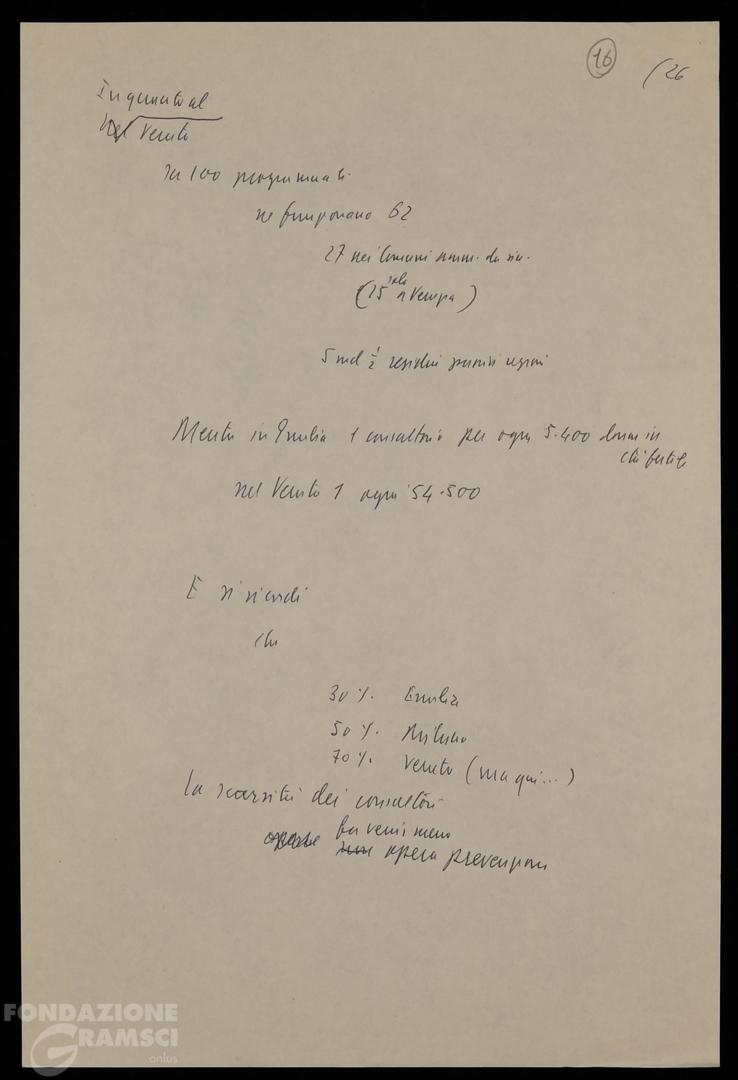 16
(26
In quanto al
Nel Veneto
su 100 programmati
ne funzionano 62
27 nei Comuni amm. da sin.
(25 solo a Venezia)
5 md 1/2 residui passivi
Mentre in Emilia 1 consultorio per ogni 5.400 donne in
età fertile
nel Veneto 1 ogni 54.500
E si ricordi
che
30% Emilia
50% Milano
70% Veneto (ma qui...)
la scarsità dei consultori
fa venir meno
opera prevenzione
FONDAZIONE
GRAMSCI
onlus